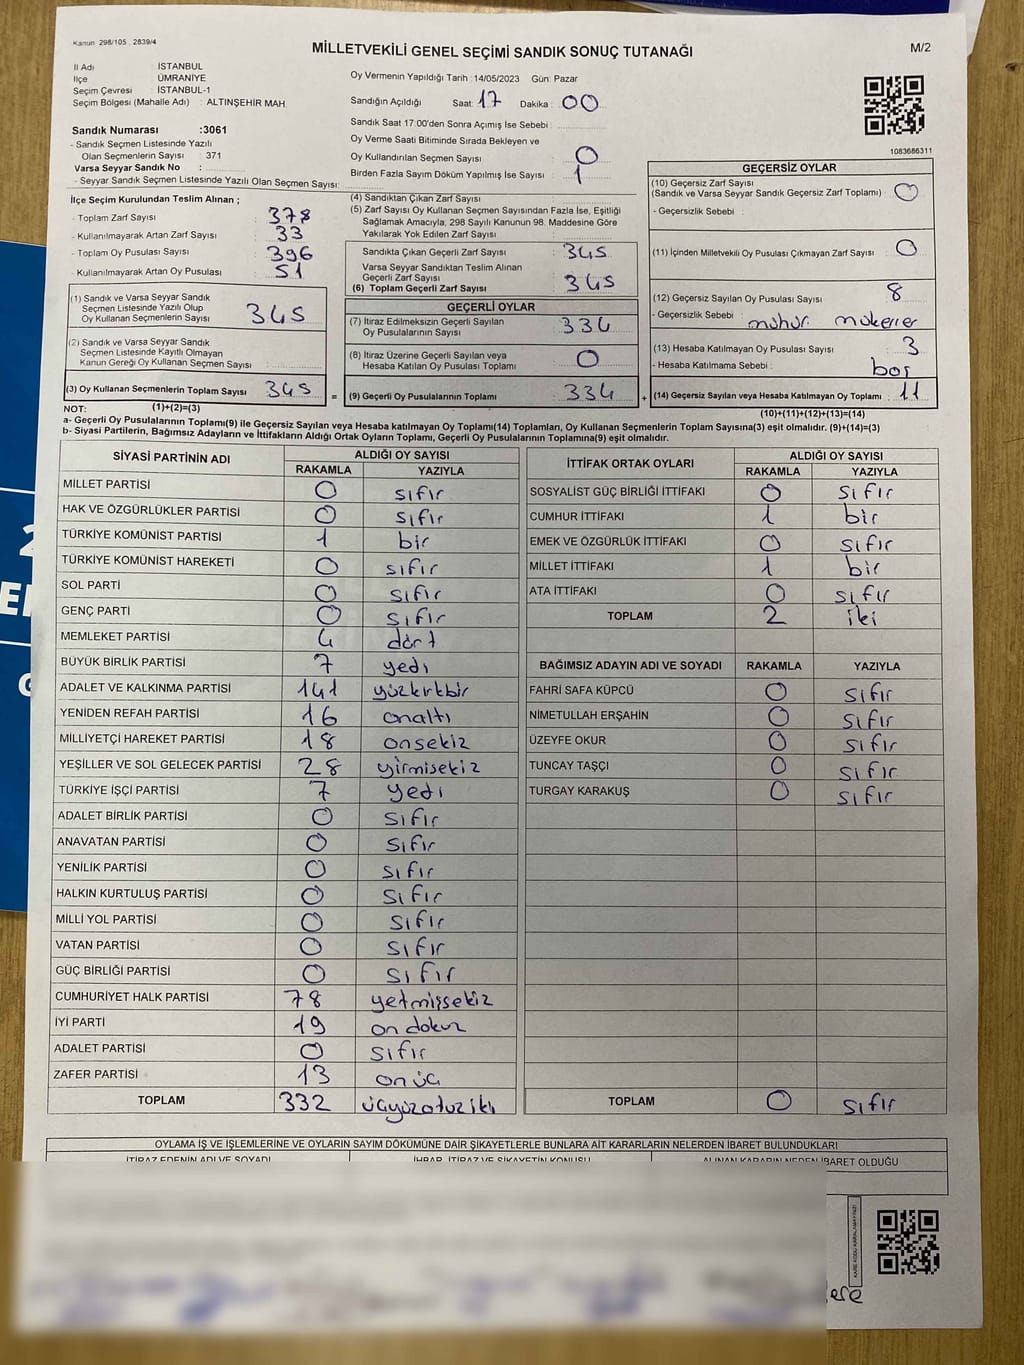 Kanun 298/105 , 2839/4
MİLLETVEKİLİ GENEL SEÇİMİ SANDIK SONUÇ TUTANAĞI
M/2
İl Adı : İSTANBUL
İlçe : ÜMRANİYE
Seçim Çevresi : İSTANBUL-1
Seçim Bölgesi (Mahalle Adı) : ALTINŞEHİR MAH.
Sandık Numarası :3061
- Sandık Seçmen Listesinde Yazılı
Olan Seçmenlerin Sayısı : 371
Varsa Seyyar Sandık No :
- Seyyar Sandık Seçmen Listesinde Yazılı Olan Seçmen Sayısı:
Oy Vermenin Yapıldığı Tarih : 14/05/2023 Gün Pazar
Sandığın Açıldığı Saat: 17 Dakika : 00
Sandık Saat 17:00'den Sonra Açımış İse Sebebi :
Oy Verme Saati Bitiminde Sırada Bekleyen ve
Oy Kullandırılan Seçmen Sayısı : 0
Birden Fazla Sayım Döküm Yapılmış İse Sayısı : 1
1083686311
İlçe Seçim Kurulundan Teslim Alınan ;
- Toplam Zarf Sayısı : 378
- Kullanılmayarak Artan Zarf Sayısı : 33
- Toplam Oy Pusulası Sayısı : 396
- Kullanılmayarak Artan Oy Pusulası : 51
(1) Sandık ve Varsa Seyyar Sandık
Seçmen Listesinde Yazılı Olup
Oy Kullanan Seçmenlerin Sayısı : 345
(2) Sandık ve Varsa Seyyar Sandık
Seçmen Listesinde Kayıtlı Olmayan
Kanun Gereği Oy Kullanan Seçmen Sayısı :
(3) Oy Kullanan Seçmenlerin Toplam Sayısı : 345
(4) Sandıktan Çıkan Zarf Sayısı :
(5) Zarf Sayısı Oy Kullanan Seçmen Sayısından Fazla İse, Eşitliği
Sağlamak Amacıyla, 298 Sayılı Kanunun 98. Maddesine Göre
Yakılarak Yok Edilen Zarf Sayısı :
Sandıkta Çıkan Geçerli Zarf Sayısı : 345
Varsa Seyyar Sandıktan Teslim Alınan
Geçerli Zarf Sayısı
(6) Toplam Geçerli Zarf Sayısı : 345
GEÇERLİ OYLAR
(7) İtiraz Edilmeksizin Geçerli Sayılan
Oy Pusulalarının Sayısı : 334
(8) İtiraz Üzerine Geçerli Sayılan veya
Hesaba Katılan Oy Pusulası Toplamı : 0
= (9) Geçerli Oy Pusulalarının Toplamı : 334
GEÇERSİZ OYLAR
(10) Geçersiz Zarf Sayısı
(Sandık ve Varsa Seyyar Sandık Geçersiz Zarf Toplamı) : 0
- Geçersizlik Sebebi :
(11) İçinden Milletvekili Oy Pusulası Çıkmayan Zarf Sayısı : 0
(12) Geçersiz Sayılan Oy Pusulası Sayısı : 8
- Geçersizlik Sebebi : mühür. mükerrer
(13) Hesaba Katılmayan Oy Pusulası Sayısı : 3
- Hesaba Katılmama Sebebi : boş
+ (14) Geçersiz Sayılan veya Hesaba Katılmayan Oy Toplamı : 11
NOT: (1)+(2)=(3)
(10)+(11)+(12)+(13)=(14)
a- Geçerli Oy Pusulalarının Toplamı(9) ile Geçersiz Sayılan veya Hesaba katılmayan Oy Toplamı(14) Toplamları, Oy Kullanan Seçmenlerin Toplam Sayısına(3) eşit olmalıdır. (9)+(14)=(3)
b- Siyasi Partilerin, Bağımsız Adayların ve İttifakların Aldığı Ortak Oyların Toplamı, Geçerli Oy Pusulalarının Toplamına(9) eşit olmalıdır.
SİYASİ PARTİNİN ADI ALDIĞI OY SAYISI
RAKAMLA YAZIYLA
MİLLET PARTİSİ 0 sıfır
HAK VE ÖZGÜRLÜKLER PARTİSİ 0 sıfır
TÜRKİYE KOMÜNİST PARTİSİ 1 bir
TÜRKİYE KOMÜNİST HAREKETİ 0 sıfır
SOL PARTİ 0 sıfır
GENÇ PARTİ 0 sıfır
MEMLEKET PARTİSİ 4 dört
BÜYÜK BİRLİK PARTİSİ 7 yedi
ADALET VE KALKINMA PARTİSİ 141 yüzkırkbir
YENİDEN REFAH PARTİSİ 16 onaltı
MİLLİYETÇİ HAREKET PARTİSİ 18 onsekiz
YEŞİLLER VE SOL GELECEK PARTİSİ 28 yirmisekiz
TÜRKİYE İŞÇİ PARTİSİ 7 yedi
ADALET BİRLİK PARTİSİ 0 sıfır
ANAVATAN PARTİSİ 0 sıfır
YENİLİK PARTİSİ 0 sıfır
HALKIN KURTULUŞ PARTİSİ 0 sıfır
MİLLİ YOL PARTİSİ 0 sıfır
VATAN PARTİSİ 0 sıfır
GÜÇ BİRLİĞİ PARTİSİ 0 sıfır
CUMHURİYET HALK PARTİSİ 78 yetmişsekiz
İYİ PARTİ 19 on dokuz
ADALET PARTİSİ 0 sıfır
ZAFER PARTİSİ 13 onüç
TOPLAM 332 üçyüzotuziki
İTTİFAK ORTAK OYLARI ALDIĞI OY SAYISI
RAKAMLA YAZIYLA
SOSYALİST GÜÇ BİRLİĞİ İTTİFAKI 0 sıfır
CUMHUR İTTİFAKI 1 bir
EMEK VE ÖZGÜRLÜK İTTİFAKI 0 sıfır
MİLLET İTTİFAKI 1 bir
ATA İTTİFAKI 0 sıfır
TOPLAM 2 iki
BAĞIMSIZ ADAYIN ADI VE SOYADI RAKAMLA YAZIYLA
FAHRİ SAFA KÜPCÜ 0 sıfır
NİMETULLAH ERŞAHİN 0 sıfır
ÜZEYFE OKUR 0 sıfır
TUNCAY TAŞÇI 0 sıfır
TURGAY KARAKUŞ 0 sıfır
TOPLAM 0 sıfır
OYLAMA İŞ VE İŞLEMLERİNE VE OYLARIN SAYIM DÖKÜMÜNE DAİR ŞİKAYETLERLE BUNLARA AİT KARARLARIN NELERDEN İBARET BULUNDUKLARI
İTİRAZ EDENİN ADI VE SOYADI İHBAR, İTİRAZ VE ŞİKAYETİN KONUSU ALINAN KARARIN NEDEN İBARET OLDUĞU